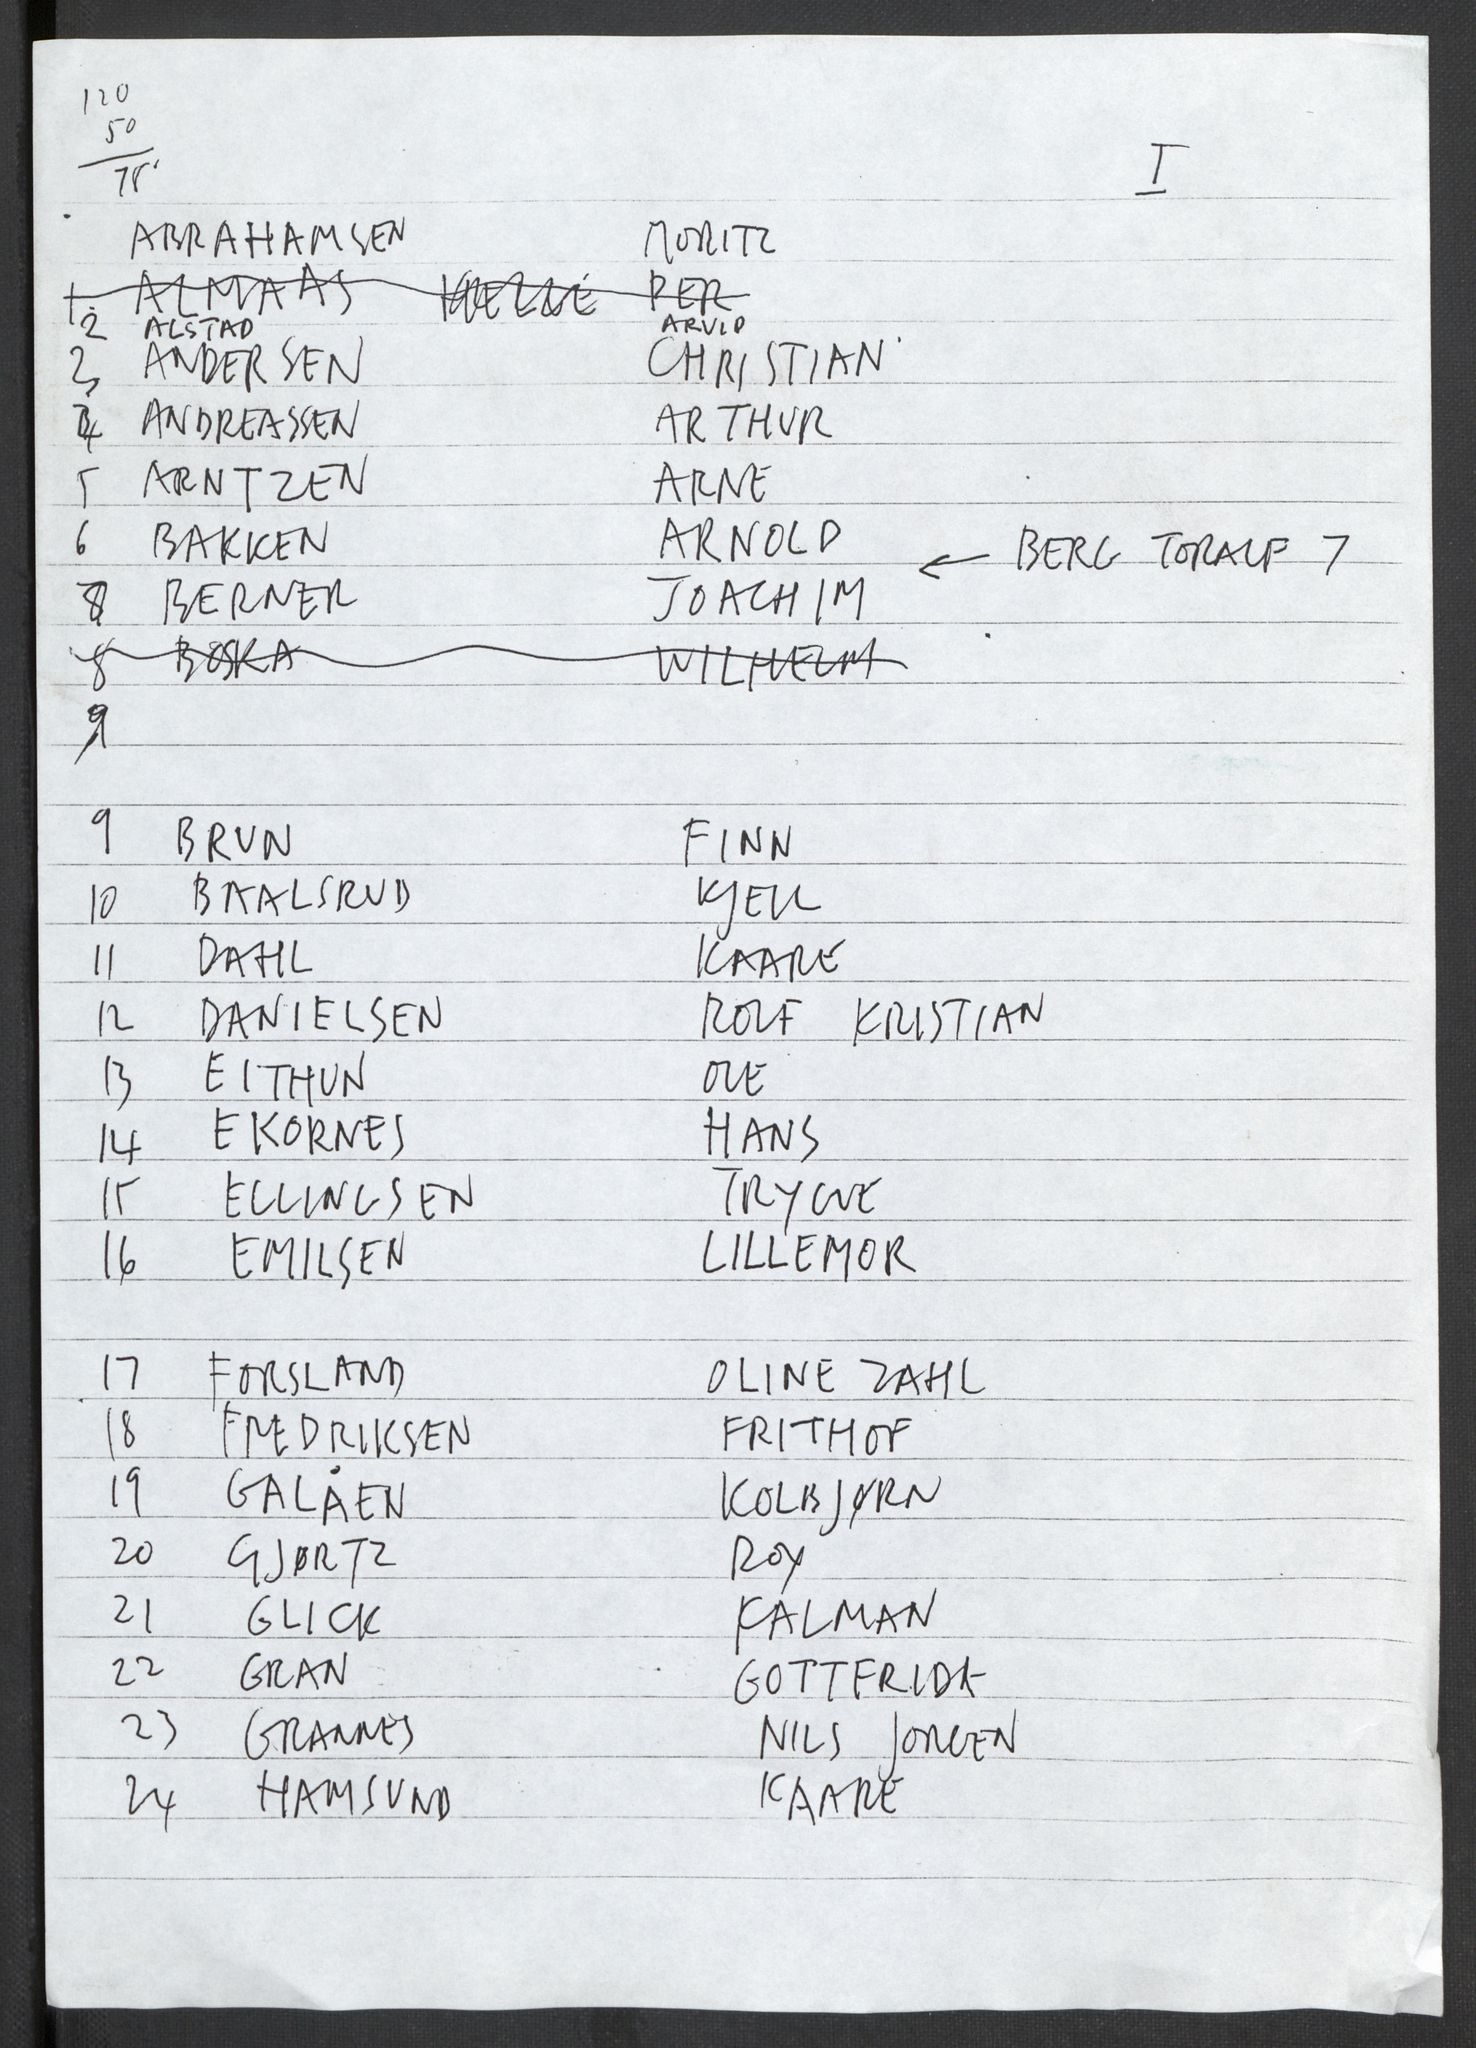 120
50
75
I
ABRAHAMSEN MORITZ
1 ALMAAS PER
2 ALSTAD ARVID
3 ANDERSEN CHRISTIAN
4 ANDREASSEN ARTHUR
5 ARNTZEN ARNE
6 BAKKEN ARNOLD
← BERG TORALF 7
8 BERNER JOACHIM
8 BØSKA WILHELM
9
9 BRUN FINN
10 BAALSRUD KJELL
11 DAHL KAARE
12 DANIELSEN ROLF KRISTIAN
13 EITHUN OLE
14 EKORNES HANS
15 ELLINGSEN TRYGVE
16 EMILSEN LILLEMOR
17 FORSLAND OLINE ZAHL
18 FREDRIKSEN FRITHOF
19 GALÅEN KOLBJØRN
20 GJØRTZ ROY
21 GLICK KALMAN
22 GRAN GOTTFRIDA
23 GRANNES NILS JORGEN
24 HAMSUND KAARE